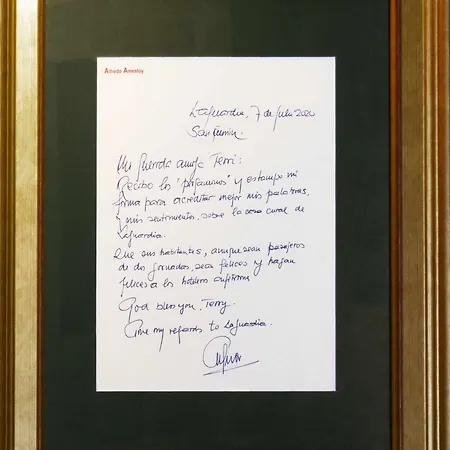 Alfredo Amestoy
Laguardia, 7 de Julio 2020
San Fermín
Mi querida amiga Terri:
Recibo los "pergaminos" y estampo mi
firma para acreditar mejor mis palabras,
y mis sentimientos, sobre la casa cural de
Laguardia.
Que sus habitantes, aunque sean pasajeros
de dos jornadas, sean felices y hagan
felices a los hoteleros anfitriones
God bless you, Terry.
Give my regards to Laguardia.